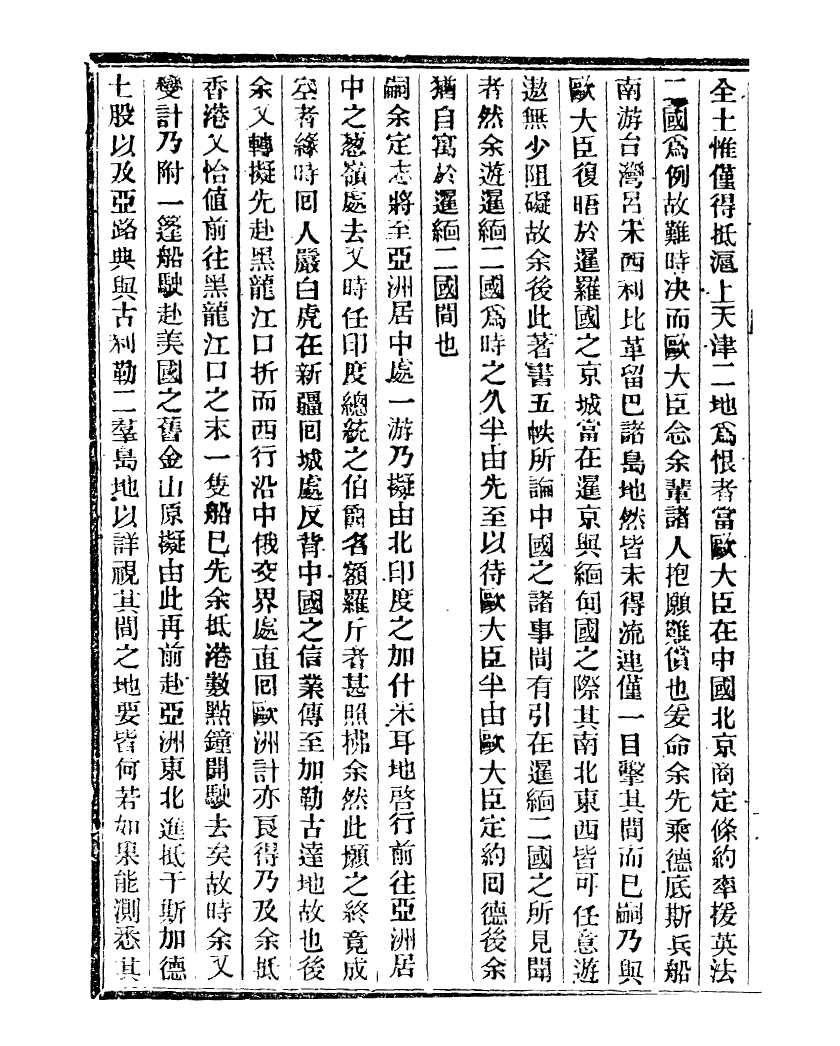 全土惟僅得抵滬上天津二地爲恨者當歐大臣在中國北京商定條約率援英法
二國爲例故難時决而歐大臣念余輩諸人抱願難償也爰命余先乘德底斯兵船
南游台灣呂宋西利比革留巴諸島地然皆未得流連僅一目擊其間而已嗣乃與
歐大臣復晤於暹羅國之京城當在暹京與緬甸國之際其南北東西皆可任意游
遨無少阻礙故余後此著書五帙所論中國之諸事間有引在暹緬二國之所見聞
者然余遊暹緬二國爲時之久半由先至以待歐大臣半由歐大臣定約回德後余
猶自寓於暹緬二國間也
嗣余定志將至亞洲居中處一游乃擬由北印度之加什米耳地啓行前往亞洲居
中之葱嶺處去又時任印度總統之伯爵名額羅斤者甚照拂余然此願之終竟成
空者緣時回人嚴白虎在新疆回城處反背中國之信業傳至加勒古達地故也後
余又轉擬先赴黑龍江口折而西行沿中俄交界處直回歐洲計亦良得乃及余抵
香港又恰值前往黑龍江口之末一隻船已先余抵港數點鐘開駛去矣故時余又
變計乃附一篷船駛赴美國之舊金山原擬由此再前赴亞洲東北進抵干斯加德
土股以及亞路典與古利勒二羣島地以詳視其間之地要皆何若如果能測悉其